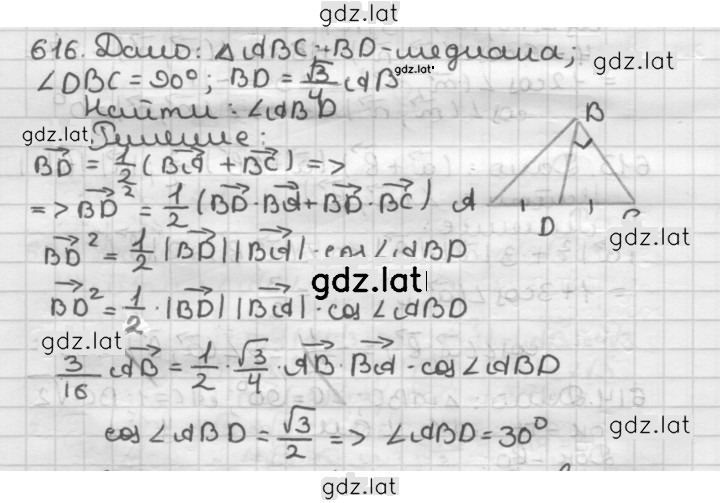 gdz.lat
616. Дано: △ABC; BD-медиана;
gdz.lat
∠DBC = 90°; BD = √3/4 AB
gdz.lat
Найти: ∠ABD
gdz.lat
Решение:
BD⃗ = 1/2 (BA⃗ + BC⃗) =>
=> BD⃗² = 1/2 (BD⃗ · BA⃗ + BD⃗ · BC⃗)
B
A
D
C
gdz.lat
BD⃗² = 1/2 |BD⃗| |BA⃗| · cos ∠ABD
gdz.lat
BD⃗² = 1/2 · |BD⃗| |BA⃗| · cos ∠ABD
gdz.lat
3/16 AB⃗ = 1/2 · √3/4 · AB⃗ · BA⃗ · cos ∠ABD
cos ∠ABD = √3/2 => ∠ABD = 30°
gdz.lat
gdz.lat